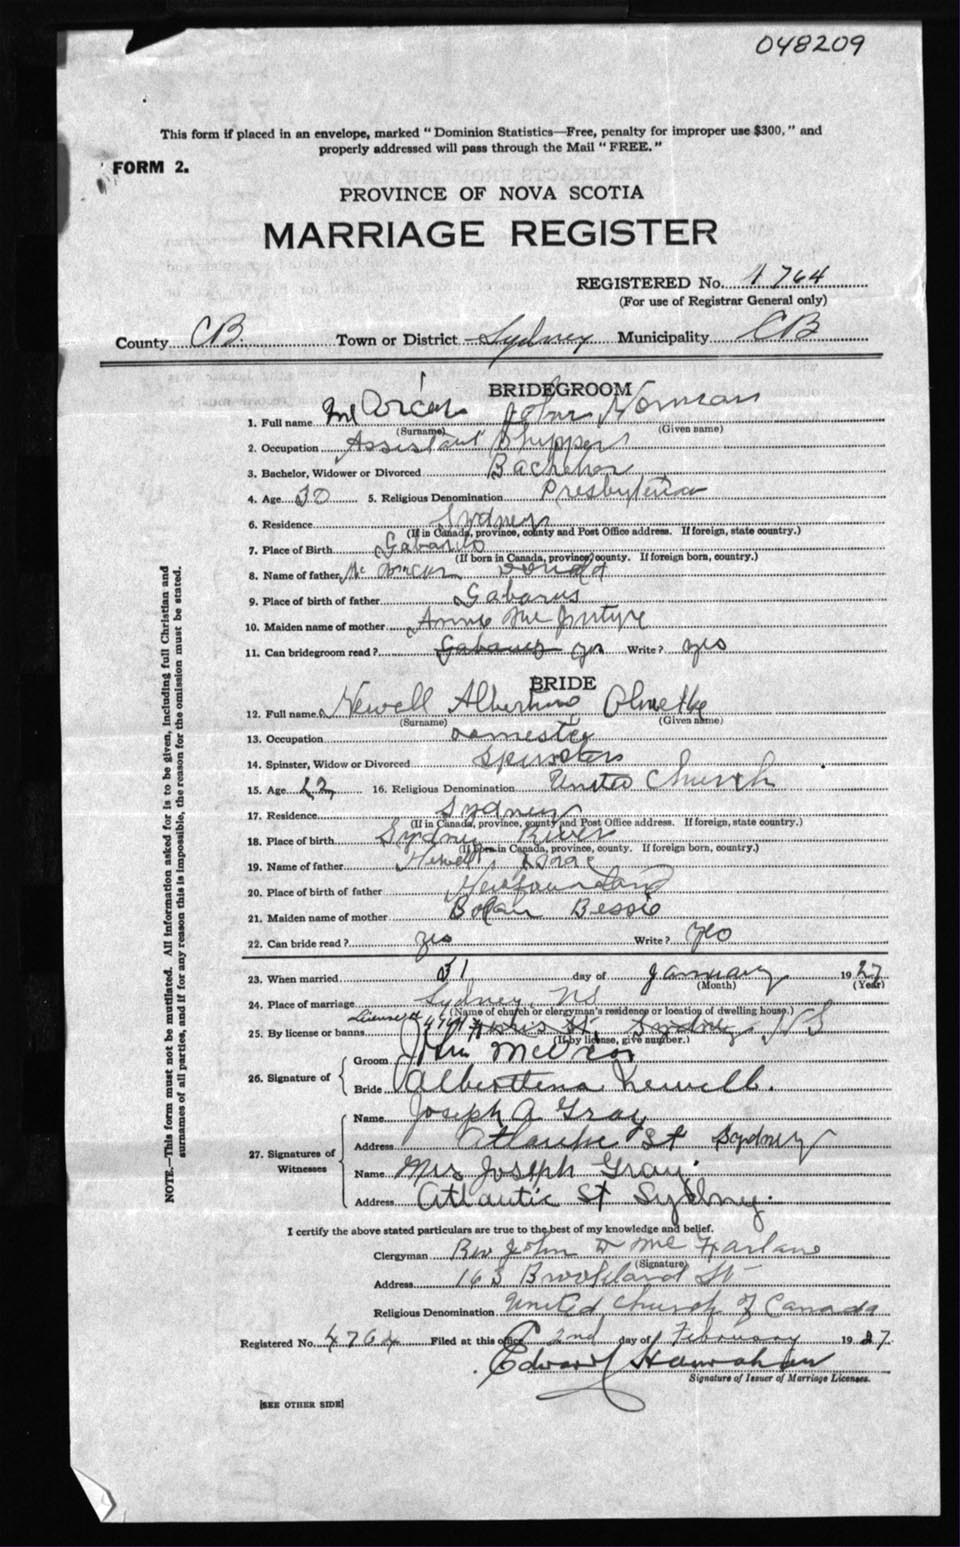 048209
This form if placed in an envelope, marked "Dominion Statistics—Free, penalty for improper use $300," and
properly addressed will pass through the Mail "FREE."
FORM 2.
PROVINCE OF NOVA SCOTIA
MARRIAGE REGISTER
REGISTERED No. 4764
(For use of Registrar General only)
County CB. Town or District Sydney Municipality CB
BRIDEGROOM
1. Full name John Norman
(Surname) (Given name)
2. Occupation Assistant Shipper
3. Bachelor, Widower or Divorced Bachelor
4. Age 30 5. Religious Denomination Presbyterian
6. Residence Sydney
(If in Canada, province, county and Post Office address. If foreign, state country.)
7. Place of Birth
(If born in Canada, province, county. If foreign born, country.)
8. Name of father
9. Place of birth of father Gabarus
10. Maiden name of mother Annie McIntyre
11. Can bridegroom read? Gabarus yes Write? yes
BRIDE
12. Full name Newell
(Surname) (Given name)
13. Occupation Domestic
14. Spinster, Widow or Divorced Spinster
15. Age 22 16. Religious Denomination United Church
17. Residence Sydney
(If in Canada, province, county and Post Office address. If foreign, state country.)
18. Place of birth Sydney River
(If born in Canada, province, county. If foreign born, country.)
19. Name of father Newell, Isaac
20. Place of birth of father Newfoundland
21. Maiden name of mother Bessie
22. Can bride read? yes Write? yes
23. When married 31 day of January 1927
(Month) (Year)
24. Place of marriage Sydney, NS
(Name of church or clergyman's residence or location of dwelling house.)
25. By license or banns License St. Sydney NS
(If by license, give number.)
26. Signature of
Groom John
Bride Albertena Newell.
27. Signatures of Witnesses
Name Joseph A Gray
Address Atlantic St Sydney
Name Mrs Joseph Gray.
Address Atlantic St Sydney.
I certify the above stated particulars are true to the best of my knowledge and belief.
Clergyman Rev John D McFarlane
(Signature)
Address 163 Brookland St
Religious Denomination United Church of Canada
Registered No. 4764 Filed at this office 2nd day of February 1927
Edward Hanrahan
Signature of Issuer of Marriage Licenses.
[SEE OTHER SIDE]
NOTE.—This form must not be mutilated. All information asked for is to be given, including full Christian and
surnames of all parties, and if for any reason this is impossible, the reason for the omission must be stated.